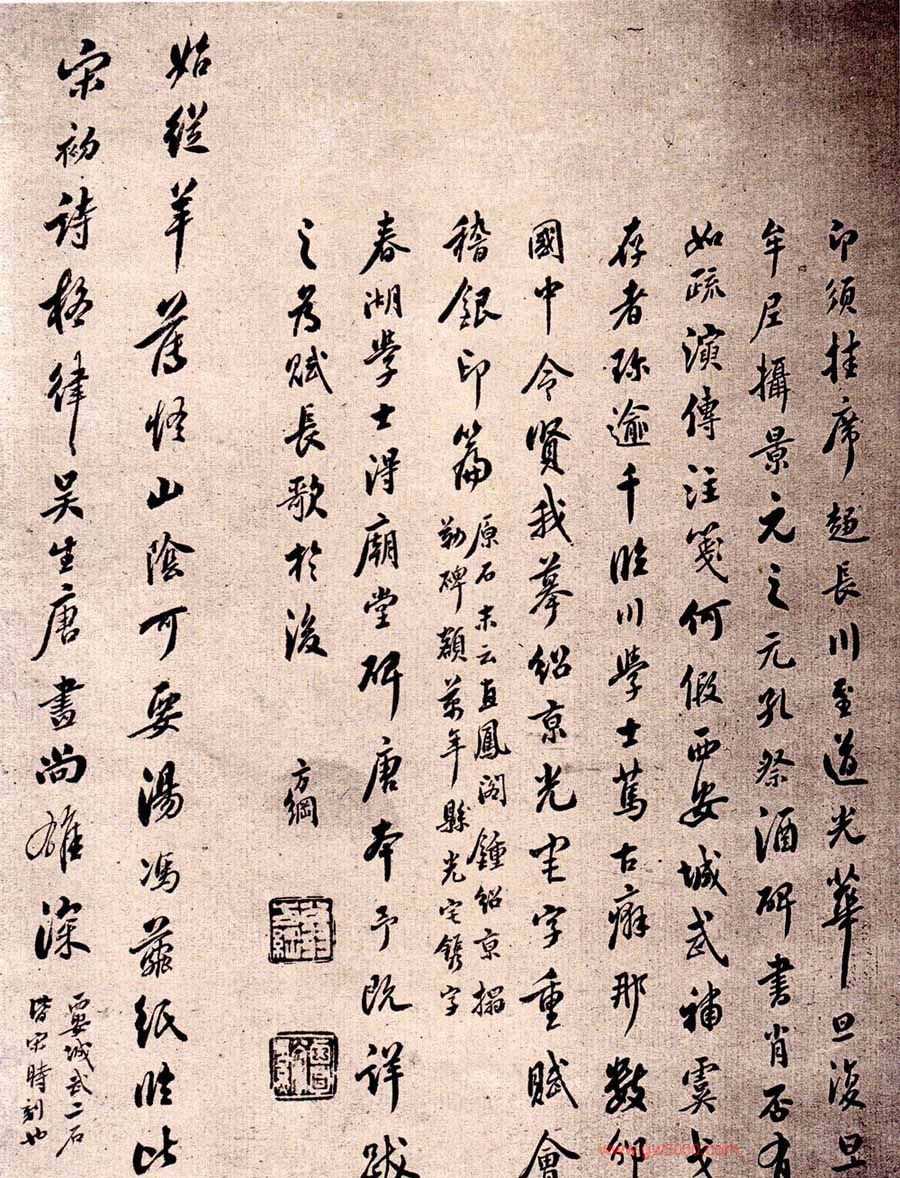 印須挂席趨長川至道光華旦復旦
牟尼攝景元之元孔祭酒碑書肖否有
如疏演傳注箋何假西安城武補虞戈
存者琜逾千臨川學士篤古癖那數卯
國中令賢我摹紹京光宅字重賦會
稽銀印篇
原石末云直鳳閣鍾紹京搨
勒碑額萬年縣光宅鐫字
春湖學士得廟堂碑唐本予既詳跋
之為賦長歌於後
方綱
始從羊薄悟山陰可要湯馮繭紙臨比
宋初詩格律律吳生唐畫尚雄深
西安城武二石
皆宋時刻也